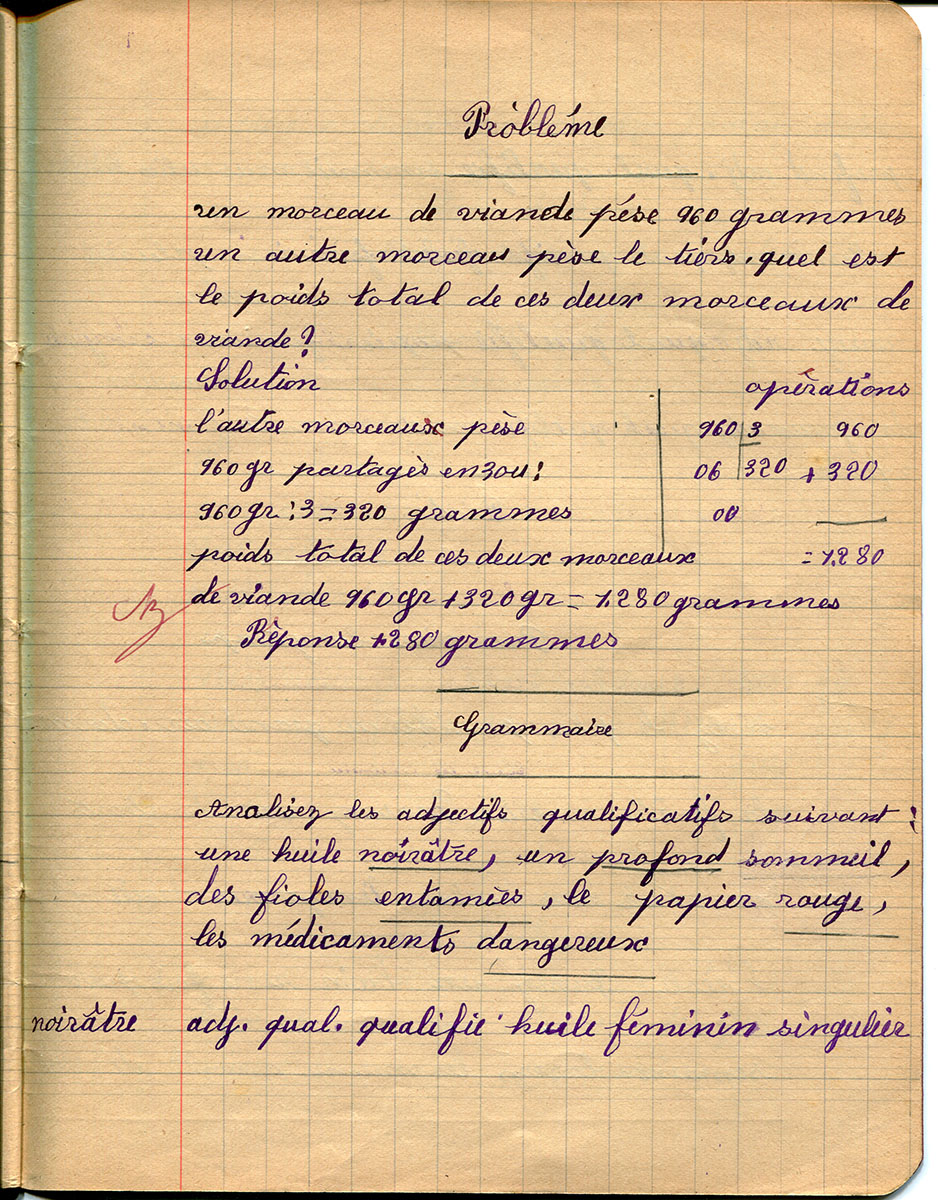 Problème
un morceau de viande pèse 960 grammes
un autre morceau pèse le tiers. quel est
le poids total de ces deux morceaux de
viande ?
Solution
opérations
l'autre morceaux pèse
960 3 960
960 gr partagès en 3 ou :
06 320 + 320
960 gr : 3 = 320 grammes
00
poids total de ces deux morceaux
= 1.280
de viande 960 gr + 320 gr = 1.280 grammes
Rèponse 1280 grammes
Grammaire
Analisez les adjectifs qualificatifs suivant :
une huile noirâtre, un profond sommeil,
des fioles entamées, le papier rouge,
les médicaments dangereux
noirâtre adj. qual. qualifie huile féminin singulier